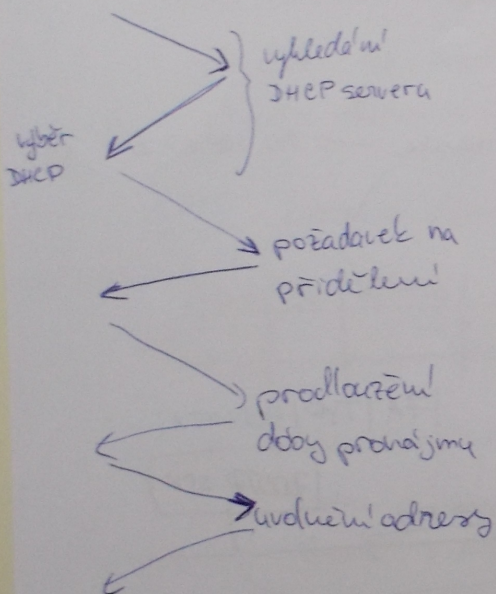 vyhledání
DHCP serveru
výběr
DHCP
požadavek na
přidělení
prodloužení
doby pronájmu
uvolnění adresy